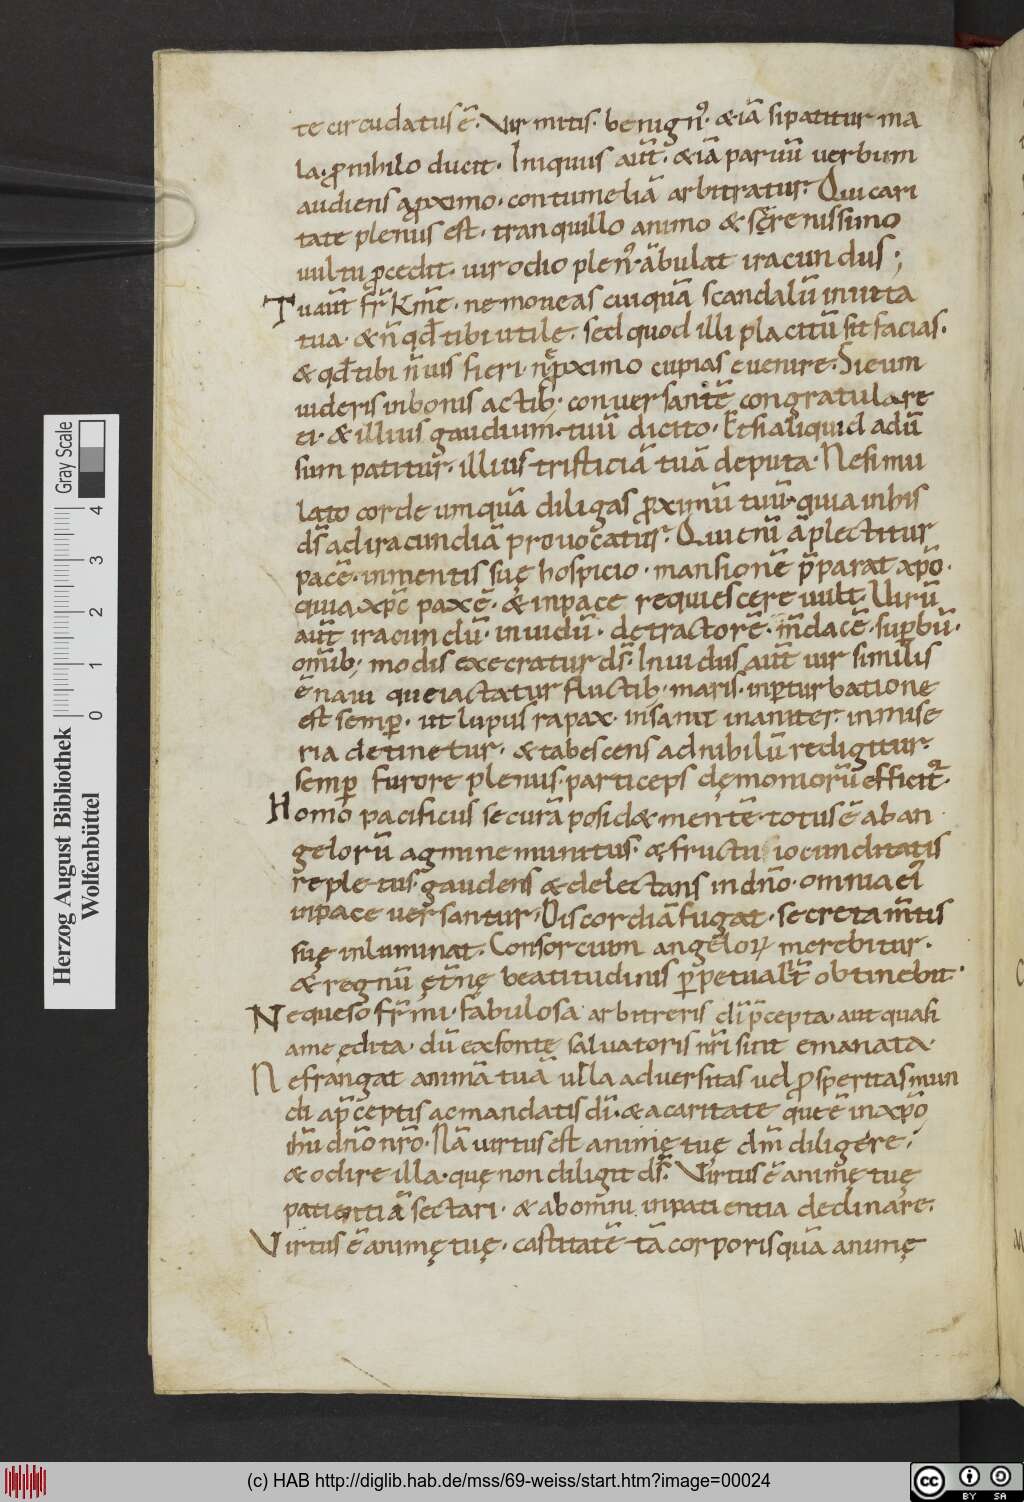 te circudatus ē. Vir mitis. benign᾿. & iā si patitur ma
la. ꝓnihilo ducit. Iniquus aut̄. & iā paruū uerbum
audiens a ꝓximo. contumeliā arbitratur. Qui cari
tate plenus est. tranquillo animo & serenissimo
uultu ꝓcedit. uir odio plen᾿ ābulat iracundus;
Tu aut̄ fr̄ Km̄e. ne moueas cuiquā scandalū in uita
tua. & n̄ qđ tibi utile. sed quod illi placitū sit facias.
& qđ tibi n̄ uis fieri. n̄ ꝓximo cupias euenire. Si eum
uideris in bonis actib; conuersantē congratulare
ei. & illius gaudium tuū dicito. Et si aliquid adū
sum patitur. illius tristiciā tuā deputa. Ne simu
lato corde umquā diligas ꝓximū tuū. quia in his
dr̄ ad iracundiā prouocatur. Qui enī āplectitur
pacē. in mentis suę hospicio. mansionē p̄parat xp̄o.
quia xp̄c pax ē. & in pace requiescere uult. Uirū
aut̄ iracundū. inuidū. detractorē. m̄dacē. supbū.
om̄ib; modis execratur ds̄. Inuidus aut̄ uir similis
ē naui que iactatur fluctib; maris. in pturbatione
est semp. ut lupus rapax. insanit inaniter. in mise
ria detinetur. & tabescens ad nihilū redigitur.
semp furore plenus. particeps dęmoniorū efficit᾿.
Homo pacificus securā possidet mentē. totus ē ab an
gelorū agmine munitus. & fructu iocunditatis
repletus. gaudens & delectans in dn̄o. omnia ei
in pace uersantur. Discordiā fugat. secreta m̄tis
suę inluminat. Consorcium angeloꝝ merebitur.
& regnū ęt̄nę beatitudinis ppetualit̄ obtinebit.
Ne queso fr̄ mi. fabulosa arbitreris di p̄cepta. aut quasi
a me edita. dū ex fonte saluatoris nr̄i sint emanata.
Ne frangat animā tuā ulla aduersitas uel ꝓsperitas mun
di a p̄ceptis ac mandatis di. & a caritate que ē in xp̄o
ihū dn̄o nr̄o. Nā uirtus est animę tuę dm̄ diligere;
& odire illa. quę non diligit ds̄. Virtus ē animę tuę
patientiā sectari. & ab omni inpatientia declinare.
Virtus ē animę tuę. castitatē tā corporis quā animę
Herzog August Bibliothek
Wolfenbüttel
0 1 2 3 4 Gray Scale
(c) HAB http://diglib.hab.de/mss/69-weiss/start.htm?image=00024
cc BY SA